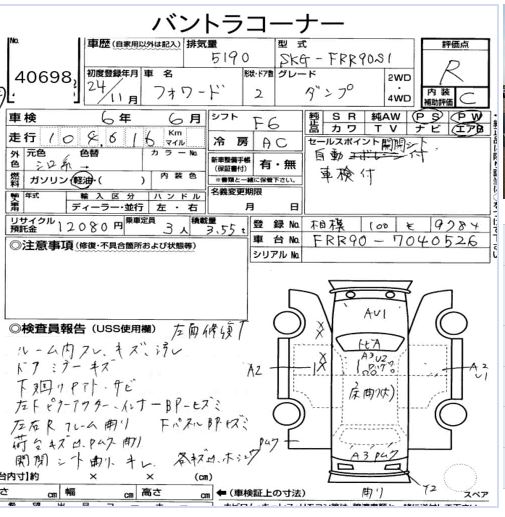 バントラコーナー
No.
40698
車歴 (自家用以外は記入)
排気量
5190
型式
SKG-FRR90S1
評価点
R
初度登録年月
24/11月
車名
フォワード
形状・ドア数
2
グレード
ダンプ
2WD
・4WD
内装
補助評価
C
車検
6年 6月
シフト
F6
純正品
SR 純AW PS PW
カワ TV ナビ エアB
走行
108,616
Km
マイル
冷房
AC
セールスポイント 開閉シート
自動 付
車検付
外色
元色 色替
カラーNo.
新車整備手帳
(保証書付)
有・無
※書類と一緒に保管下さい。
燃料
ガソリン・軽油・( )
内装色
名義変更期限
月 日
輸入車
年式
輸入区分
ハンドル
ディーラー・並行
左・右
リサイクル
預託金
12080円
乗車定員
3人
積載量
3.55t
登録No.
相模 100 そ 9784
車台No.
FRR90-7040526
シリアルNo.
◎注意事項(修復・不具合箇所および状態等)
◎検査員報告(USS使用欄)
左面修復
ルーム内フレ、キズ、汚レ
ドアミラーキズ
下回りサビ
左右Rフレーム曲り
開閉シート曲り キレ
AU1
A3 U2
A2
A2
U1
床曲り(大)
A3
Y2
曲り
台内寸)約
(cm)
幅 (cm)
高さ (cm)
←(車検証上の寸法)
スペア